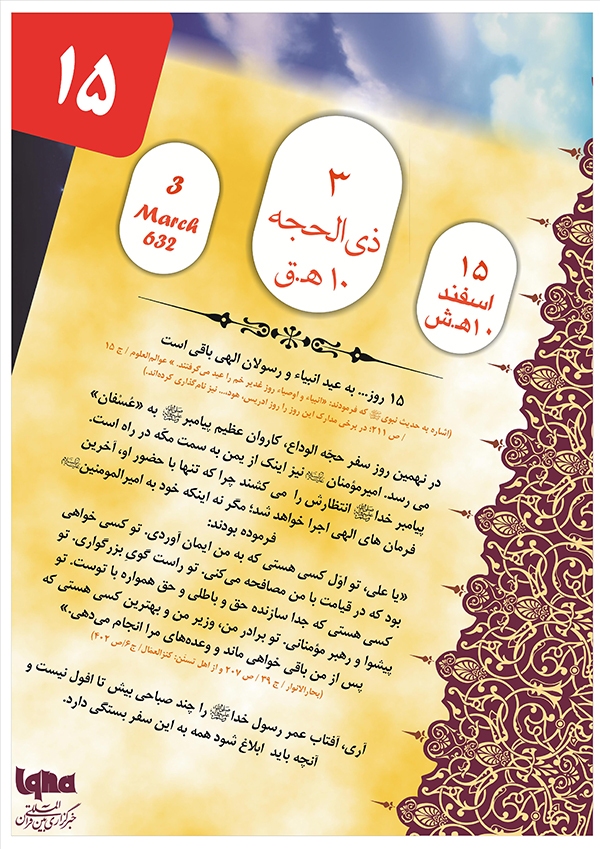 ۱۵
3
March
632
۳
ذی‌الحجه
۱۰ هـ.ق
۱۵
اسفند
۱۰هـ.ش
۱۵ روز... به عید انبیاء و رسولان الهی باقی است
(اشاره به حدیث نبوی ﷺ که فرمودند: «انبیاء و اوصیاء روز غدیر خم را عید می‌گرفتند.» عوالم‌العلوم / ج ۱۵
/ ص ۲۱۱؛ در برخی مدارک این روز را روز ادریس، هود... نیز نام‌گذاری کرده‌اند.)
در نهمین روز سفر حجّه الوداع، کاروان عظیم پیامبر ﷺ به «عُسْفان»
می رسد. امیرمؤمنان نیز اینک از یمن به سمت مکّه در راه است.
پیامبر خدا انتظارش را می کشند چرا که تنها با حضور او، آخرین
فرمان های الهی اجرا خواهد شد؛ مگر نه اینکه خود به امیرالمومنین
فرموده بودند:
«یا علی، تو اوّل کسی هستی که به من ایمان آوردی. تو کسی خواهی
بود که در قیامت با من مصافحه می‌کنی. تو راست گوی بزرگواری. تو
کسی هستی که جدا سازنده حق و باطلی و حق همواره با توست. تو
پیشوا و رهبر مؤمنانی. تو برادر من، وزیر من و بهترین کسی هستی که
پس از من باقی خواهی ماند و وعده‌های مرا انجام می‌دهی.»
(بحارالانوار / ج ۳۹ / ص ۲۰۷ و از اهل تسنن: کنزالعمال / ج۶/ص ۴۰۲)
آری، آفتاب عمر رسول خدا را چند صباحی بیش تا افول نیست و
آنچه باید ابلاغ شود همه به این سفر بستگی دارد.
Iqna
خبرگزاری بین المللی قرآن